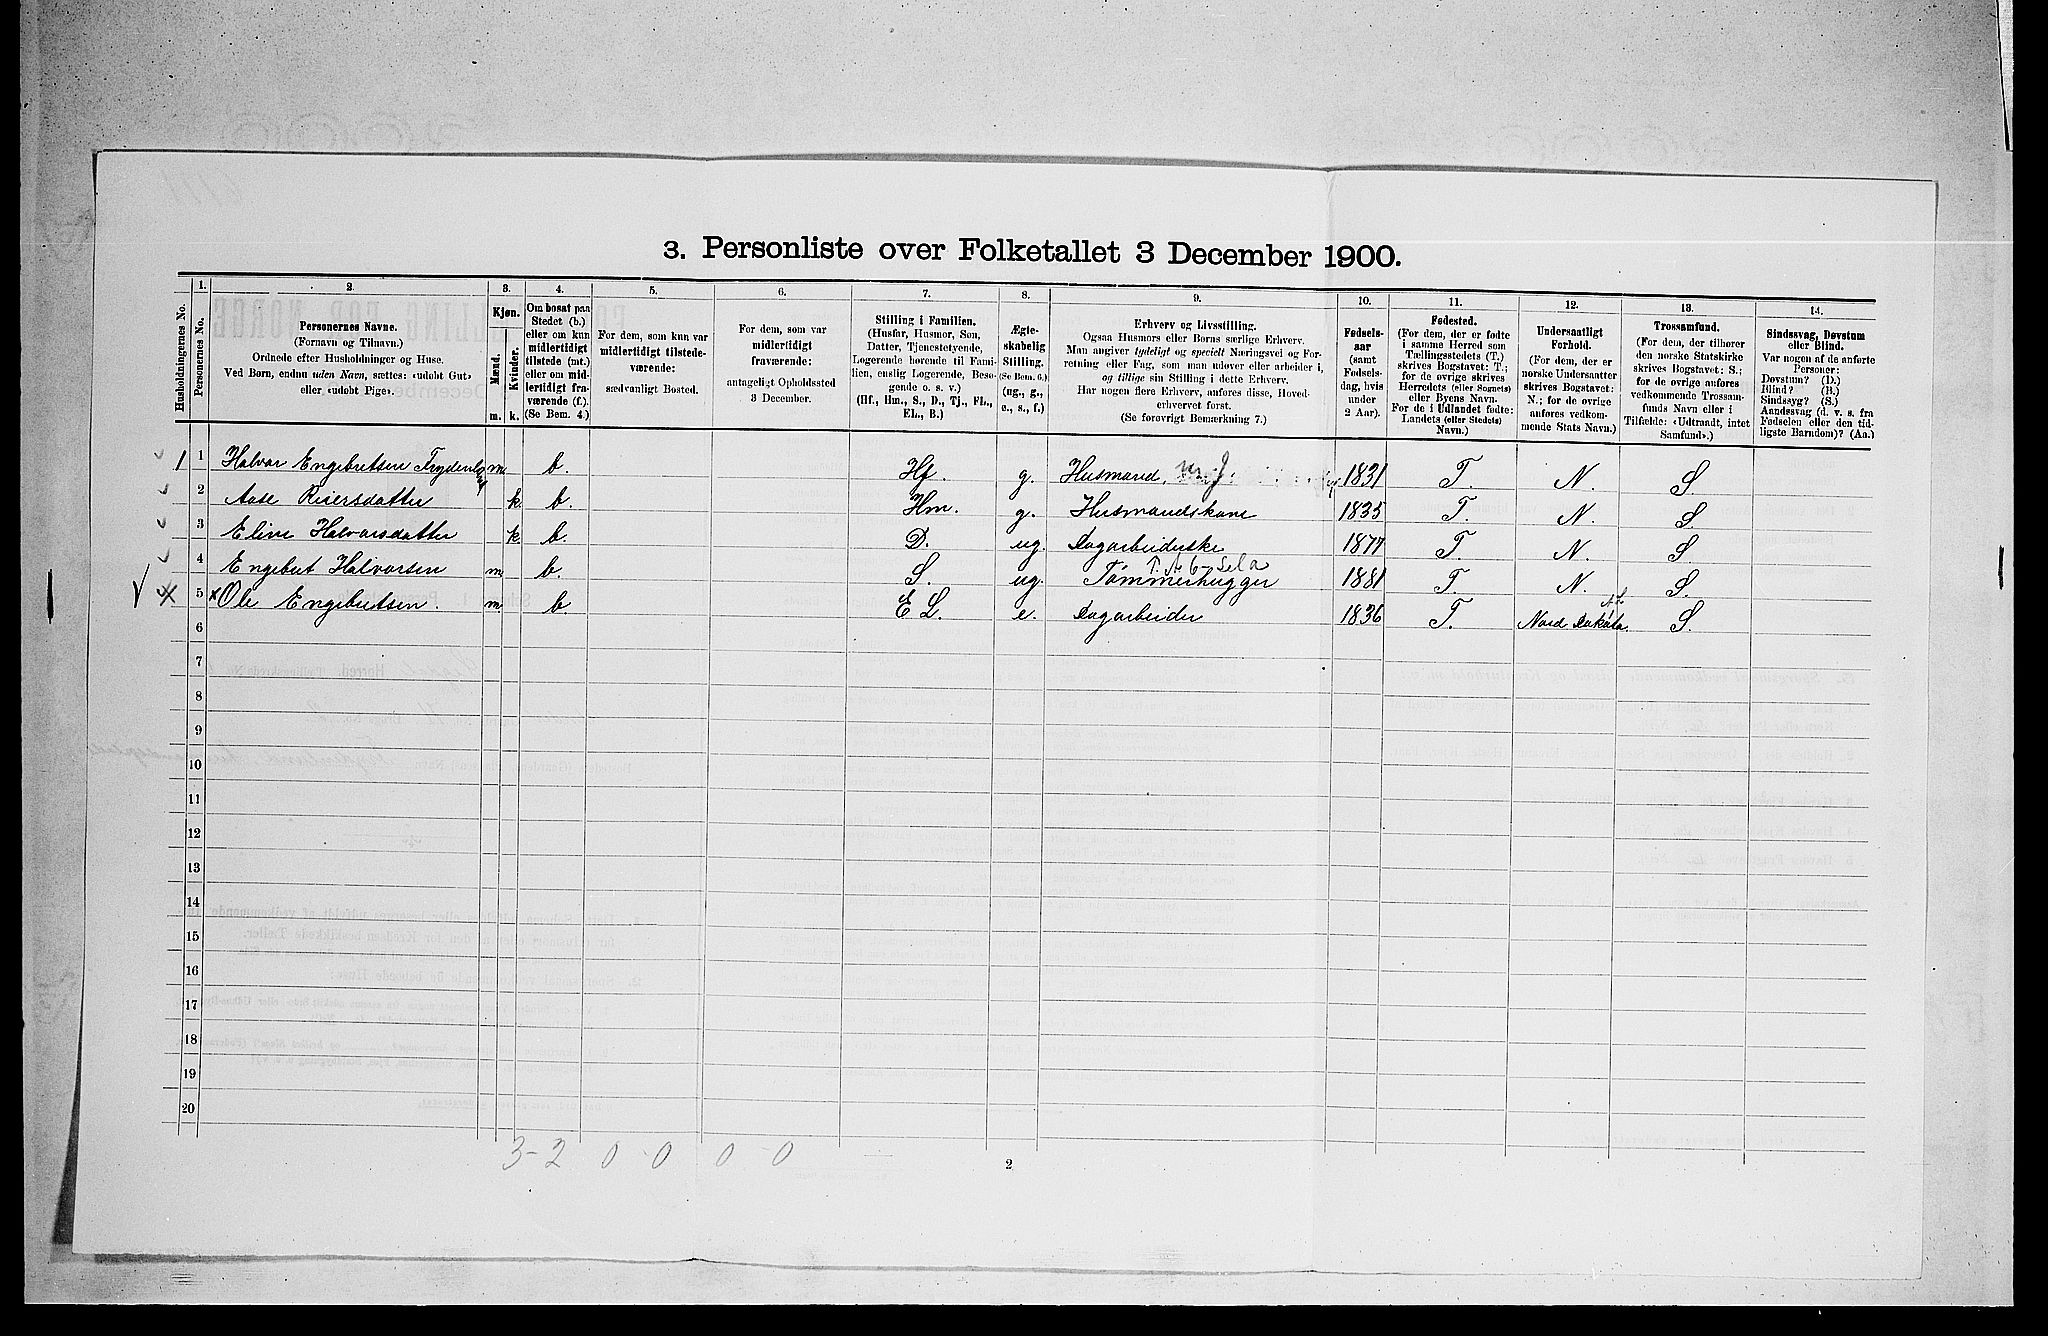 3. Personliste over Folketallet 3 December 1900.
Husholdningernes No.
1.
Personernes No.
2.
Personernes Navne.
(Fornavn og Tilnavn.)
Ordnede efter Husholdninger og Huse.
Ved Børn, endnu uden Navn, sættes: «udøbt Gut»
eller «udøbt Pige».
3.
Kjøn.
Mænd.
m.
Kvinder.
k.
4.
Om bosat paa
Stedet (b.)
eller om kun
midlertidigt
tilstede (mt.)
eller om mid-
lertidigt fra-
værende (f.).
(Se Bem. 4.)
5.
For dem, som kun var
midlertidigt tilstede-
værende:
sædvanligt Bosted.
6.
For dem, som var
midlertidigt
fraværende:
antageligt Opholdssted
3 December.
7.
Stilling i Familien.
(Husfar, Husmor, Søn,
Datter, Tjenestetyende,
Logerende hørende til Fami-
lien, enslig Logerende, Besø-
gende o. s. v.)
(Hf., Hm., S., D., Tj., FL.,
EL., B.)
8.
Ægte-
skabelig
Stilling.
(Se Bem. 6.)
(ug., g.,
e., s., f.)
9.
Erhverv og Livsstilling.
Ogsaa Husmors eller Børns særlige Erhverv.
Man angiver tydeligt og specielt Næringsvei og For-
retning eller Fag, som man udøver eller arbeider i,
og tillige sin Stilling i dette Erhverv.
Har nogen flere Erhverv, anføres disse, Hoved-
erhvervet først.
(Se forøvrigt Bemærkning 7.)
10.
Fødsels-
aar
(samt
Fødsels-
dag, hvis
under
2 Aar).
11.
Fødested.
(For dem, der er fødte
i samme Herred som
Tællingsstedets (T.)
skrives Bogstavet: T.;
for de øvrige skrives
Herredets (eller Sognets)
eller Byens Navn.
For de i Udlandet fødte:
Landets (eller Stedets)
Navn.)
12.
Undersaatligt
Forhold.
(For dem, der er
norske Undersaatter
skrives Bogstavet:
N.; for de øvrige
anføres vedkom-
mende Stats Navn.)
13.
Trossamfund.
(For dem, der tilhører
den norske Statskirke
skrives Bogstavet: S.;
for de øvrige anføres
vedkommende Trossam-
funds Navn eller i
Tilfælde: «Udtraadt, intet
Samfund».)
14.
Sindssvag, Døvstum
eller Blind.
Var nogen af de anførte
Personer:
Døvstum? (D.)
Blind? (B.)
Sindssyg? (S.)
Aandssvag (d. v. s. fra
Fødselen eller den tid-
ligste Barndom)? (Aa.)
1 1 Halvor Engebretsen Frydenlund m. b. Hf. g. Husmand, 1831 T. N. S.
2 Aase Reiersdatter k. b. Hm. g. Husmandskone 1835 T. N. S.
3 Eline Halvorsdatter k b. D. ug. Dagarbeiderske 1877 T. N. S
4 Engebret Halvorsen m b. S. ug. Tømmerhugger 1881 T. N. S.
5 x Ole Engebretsen. m. b. E L. e. Dagarbeider 1836 T. Nord Dakota. S.
6
7
8
9
10
11
12
13
14
15
16
17
18
19
20
3-2 0-0 0-0
2